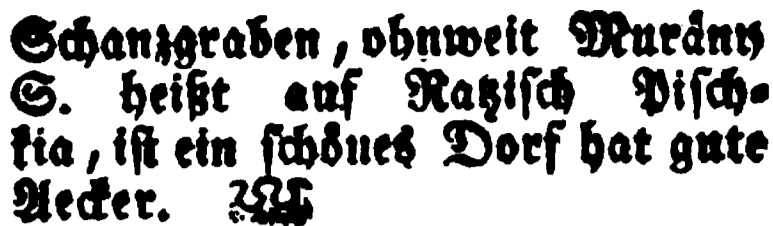 Schanzgraben, ohnweit Murány
S. heißt auf Ratzisch Pisch-
kia, ist ein schönes Dorf hat gute
Aecker.